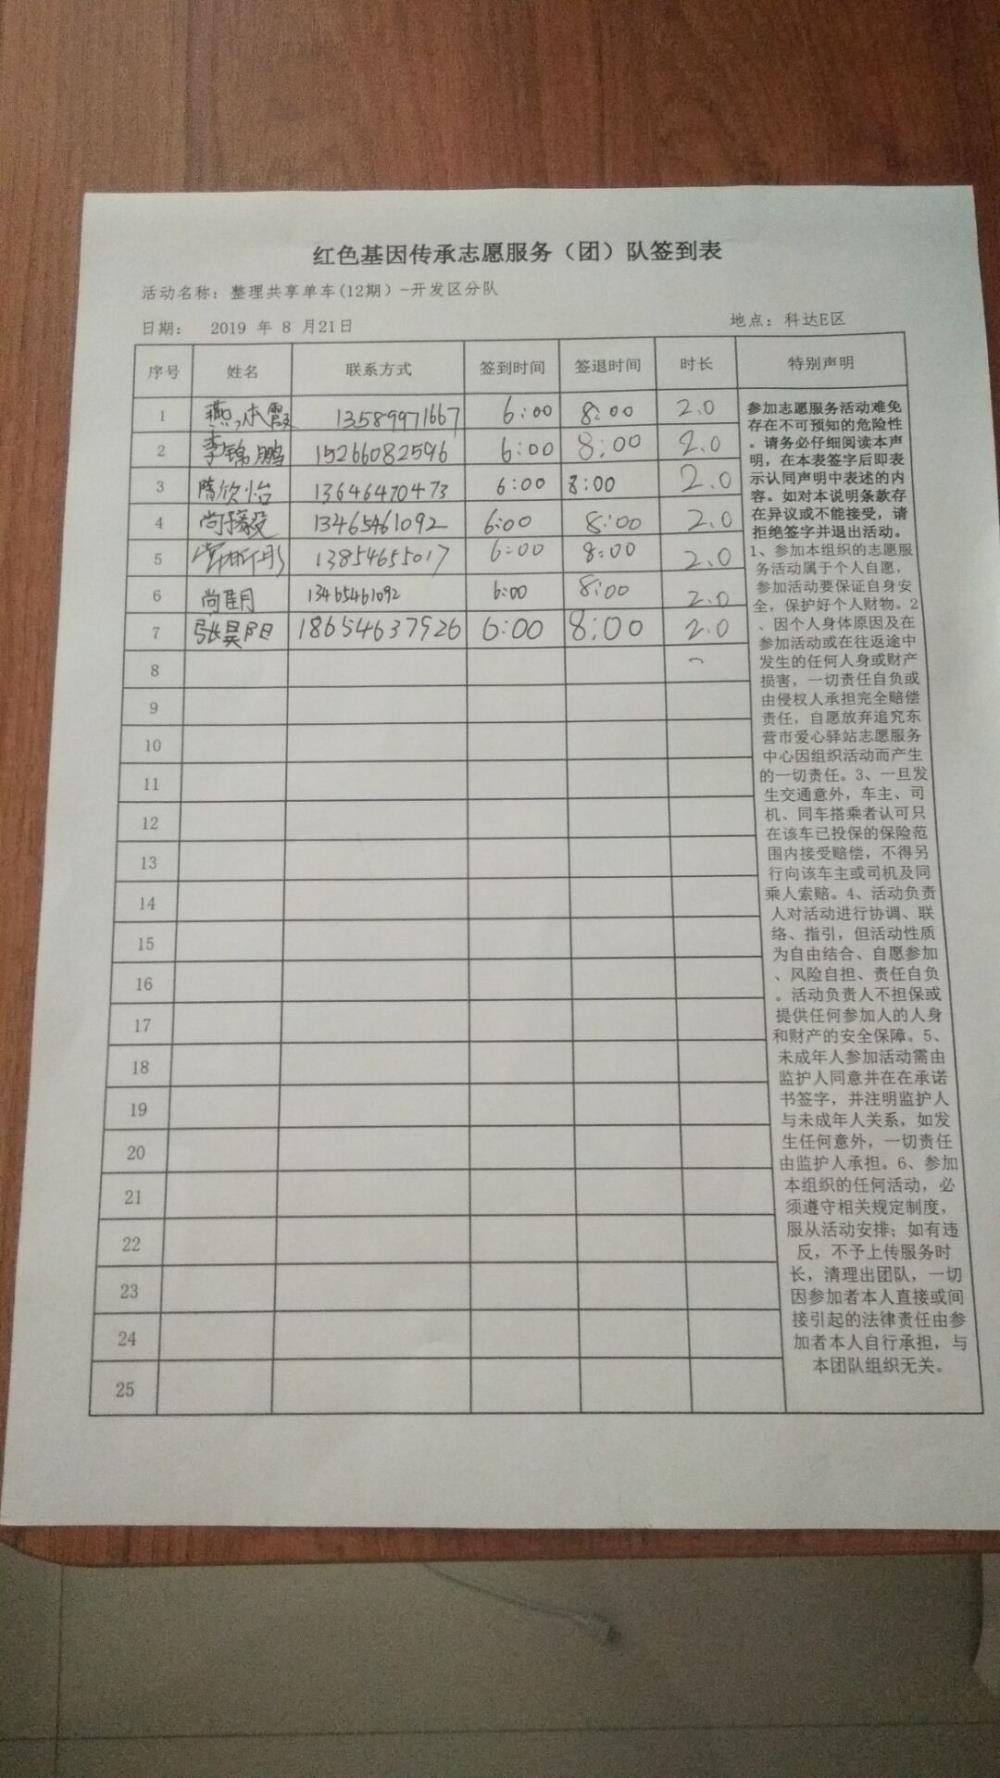 红色基因传承志愿服务（团）队签到表
活动名称：整理共享单车(12期）-开发区分队
日期： 2019 年 8 月21日 地点：科达E区
序号 姓名 联系方式 签到时间 签退时间 时长 特别声明
1 燕冰霞 13589971667 6:00 8:00 2.0
2 李锦鹏 15266082596 6:00 8:00 2.0
3 隋欣怡 13646470473 6:00 8:00 2.0
4 13465461092 6:00 8:00 2.0
5 13854655017 6:00 8:00 2.0
6 13465461092 6:00 8:00 2.0
7 张昊阳 18654637926 6:00 8:00 2.0
8
9
10
11
12
13
14
15
16
17
18
19
20
21
22
23
24
25
参加志愿服务活动难免
存在不可预知的危险性
。请务必仔细阅读本声
明，在本表签字后即表
示认同声明中表述的内
容。如对本说明条款存
在异议或不能接受，请
拒绝签字并退出活动。
1、参加本组织的志愿服
务活动属于个人自愿，
参加活动要保证自身安
全，保护好个人财物。2
、因个人身体原因及在
参加活动或在往返途中
发生的任何人身或财产
损害，一切责任自负或
由侵权人承担完全赔偿
责任，自愿放弃追究东
营市爱心驿站志愿服务
中心因组织活动而产生
的一切责任。3、一旦发
生交通意外，车主、司
机、同车搭乘者认可只
在该车已投保的保险范
围内接受赔偿，不得另
行向该车主或司机及同
乘人索赔。4、活动负责
人对活动进行协调、联
络、指引，但活动性质
为自由结合、自愿参加
、风险自担、责任自负
。活动负责人不担保或
提供任何参加人的人身
和财产的安全保障。5、
未成年人参加活动需由
监护人同意并在在承诺
书签字，并注明监护人
与未成年人关系，如发
生任何意外，一切责任
由监护人承担。6、参加
本组织的任何活动，必
须遵守相关规定制度，
服从活动安排；如有违
反，不予上传服务时
长，清理出团队，一切
因参加者本人直接或间
接引起的法律责任由参
加者本人自行承担，与
本团队组织无关。